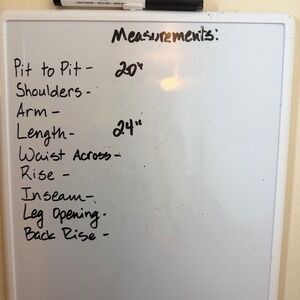 Measurements:
Pit to Pit - 20"
Shoulders -
Arm -
Length - 24"
Waist Across -
Rise -
Inseam -
Leg Opening -
Back Rise -